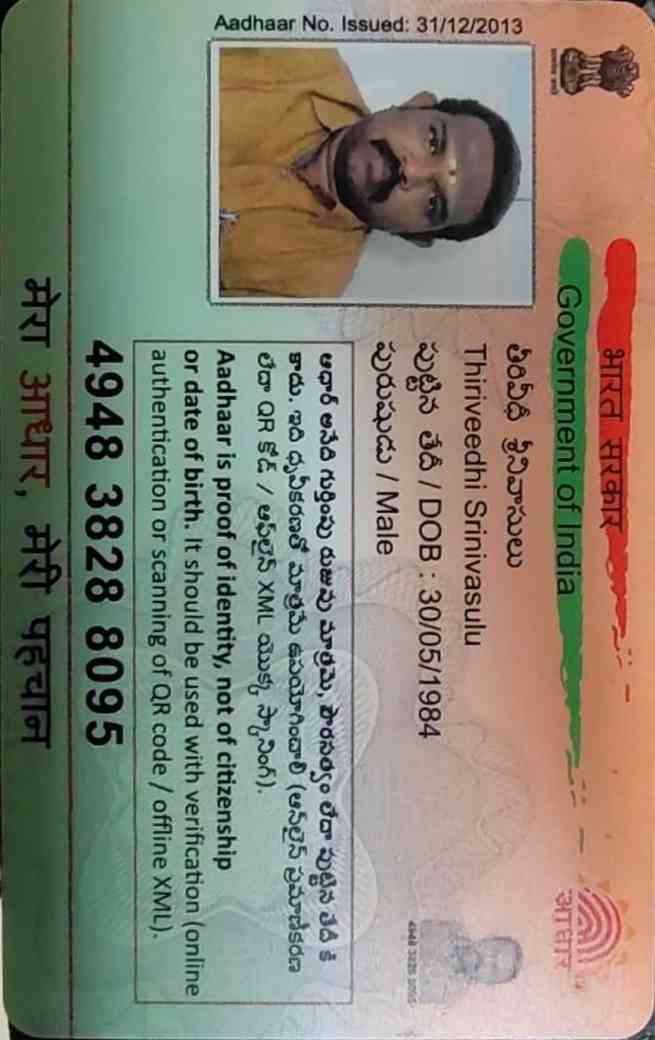 भारत सरकार
Government of India
Aadhaar No. Issued: 31/12/2013
తిరివీధి శ్రీనివాసులు
Thiriveedhi Srinivasulu
పుట్టిన తేదీ / DOB : 30/05/1984
పురుషుడు / Male
ఆధార్ అనేది గుర్తింపు రుజువు మాత్రమే, పౌరసత్వం లేదా పుట్టిన తేదీ కి
కాదు. ఇది ధృవీకరణతో మాత్రమే ఉపయోగించాలి (ఆన్‌లైన్ ప్రమాణీకరణ
లేదా QR కోడ్ / ఆఫ్‌లైన్ XML యొక్క స్కానింగ్).
Aadhaar is proof of identity, not of citizenship
or date of birth. It should be used with verification (online
authentication or scanning of QR code / offline XML).
4948 3828 8095
मेरा आधार, मेरी पहचान
आधार
4948 3828 8095